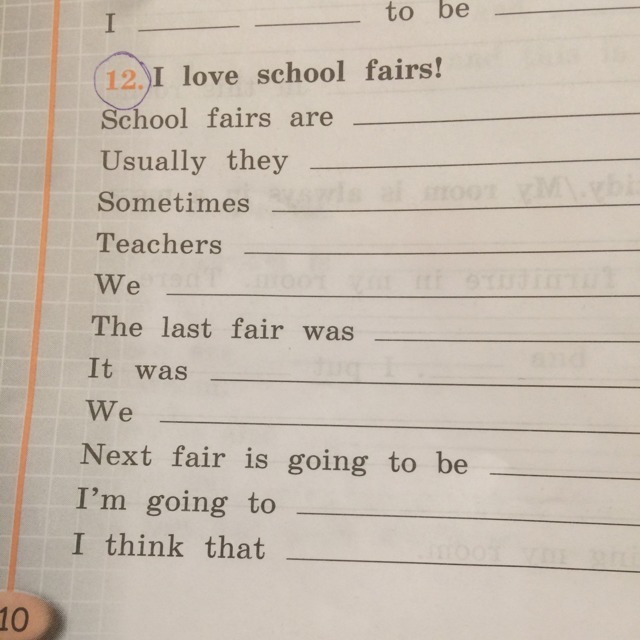 I ______ ______ to be ______
12. I love school fairs!
School fairs are ______
Usually they ______
Sometimes ______
Teachers ______
We ______
The last fair was ______
It was ______
We ______
Next fair is going to be ______
I'm going to ______
I think that ______
10